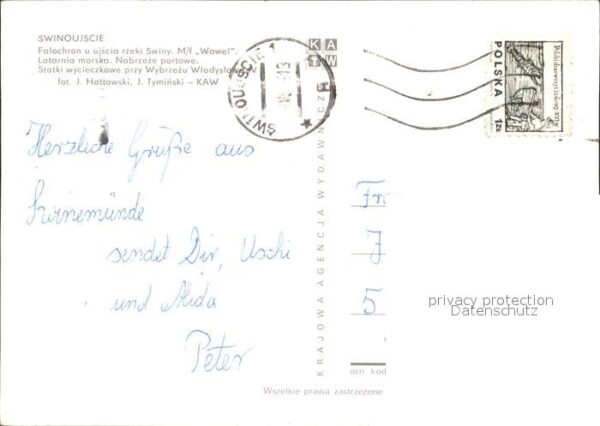 SWINOUJSCIE
Falochron u ujścia rzeki Świny. M/f „Wawel”.
Latarnia morska. Nabrzeże portowe.
Statki wycieczkowe przy Wybrzeżu Władysława
fot. J. Hattowski, J. Tymiński – KAW
ŚWINOUJŚCIE 1
K A
T W
POLSKA
1ZŁ
Herzliche Grüße aus
Swinemünde
sendet Dir, Uschi
und Aida
Peter
KRAJOWA AGENCJA WYDAWNICZA
Fr
J
5
privacy protection
Datenschutz
ozn. kod
Wszelkie prawa zastrzeżone